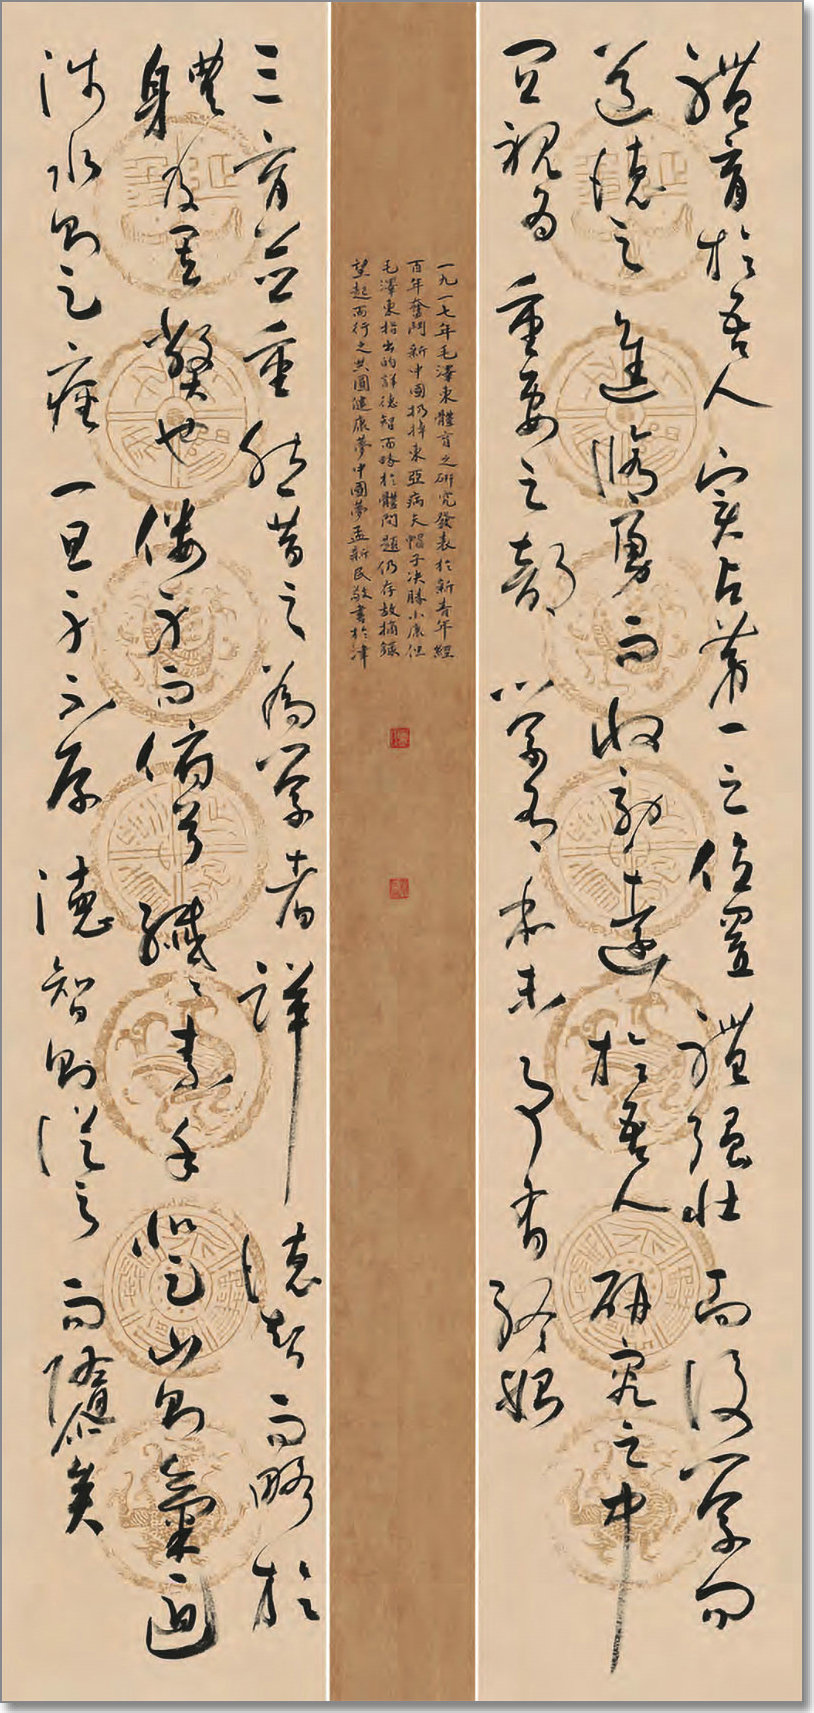 體育於吾人实占第一之位置體强壮而後学问
道德之進脩勇而收効遠於吾人研究之中
宜視为重要之部学有本末事有終始
一九一七年毛澤東體育之研究發表於新青年經
百年奮鬥新中國扔掉東亞病夫帽子决勝小康但
毛澤東指出的詳德智而略於體問題仍存故摘錄
望起而行之共圓健康夢中國夢孟新民敬書於津
三育並重然昔之為学者詳德智而略於
軆及其弊也僂身而俯首纖纖素手登山則氣迫
涉水則足痙一旦身不存德智則從之而隳矣